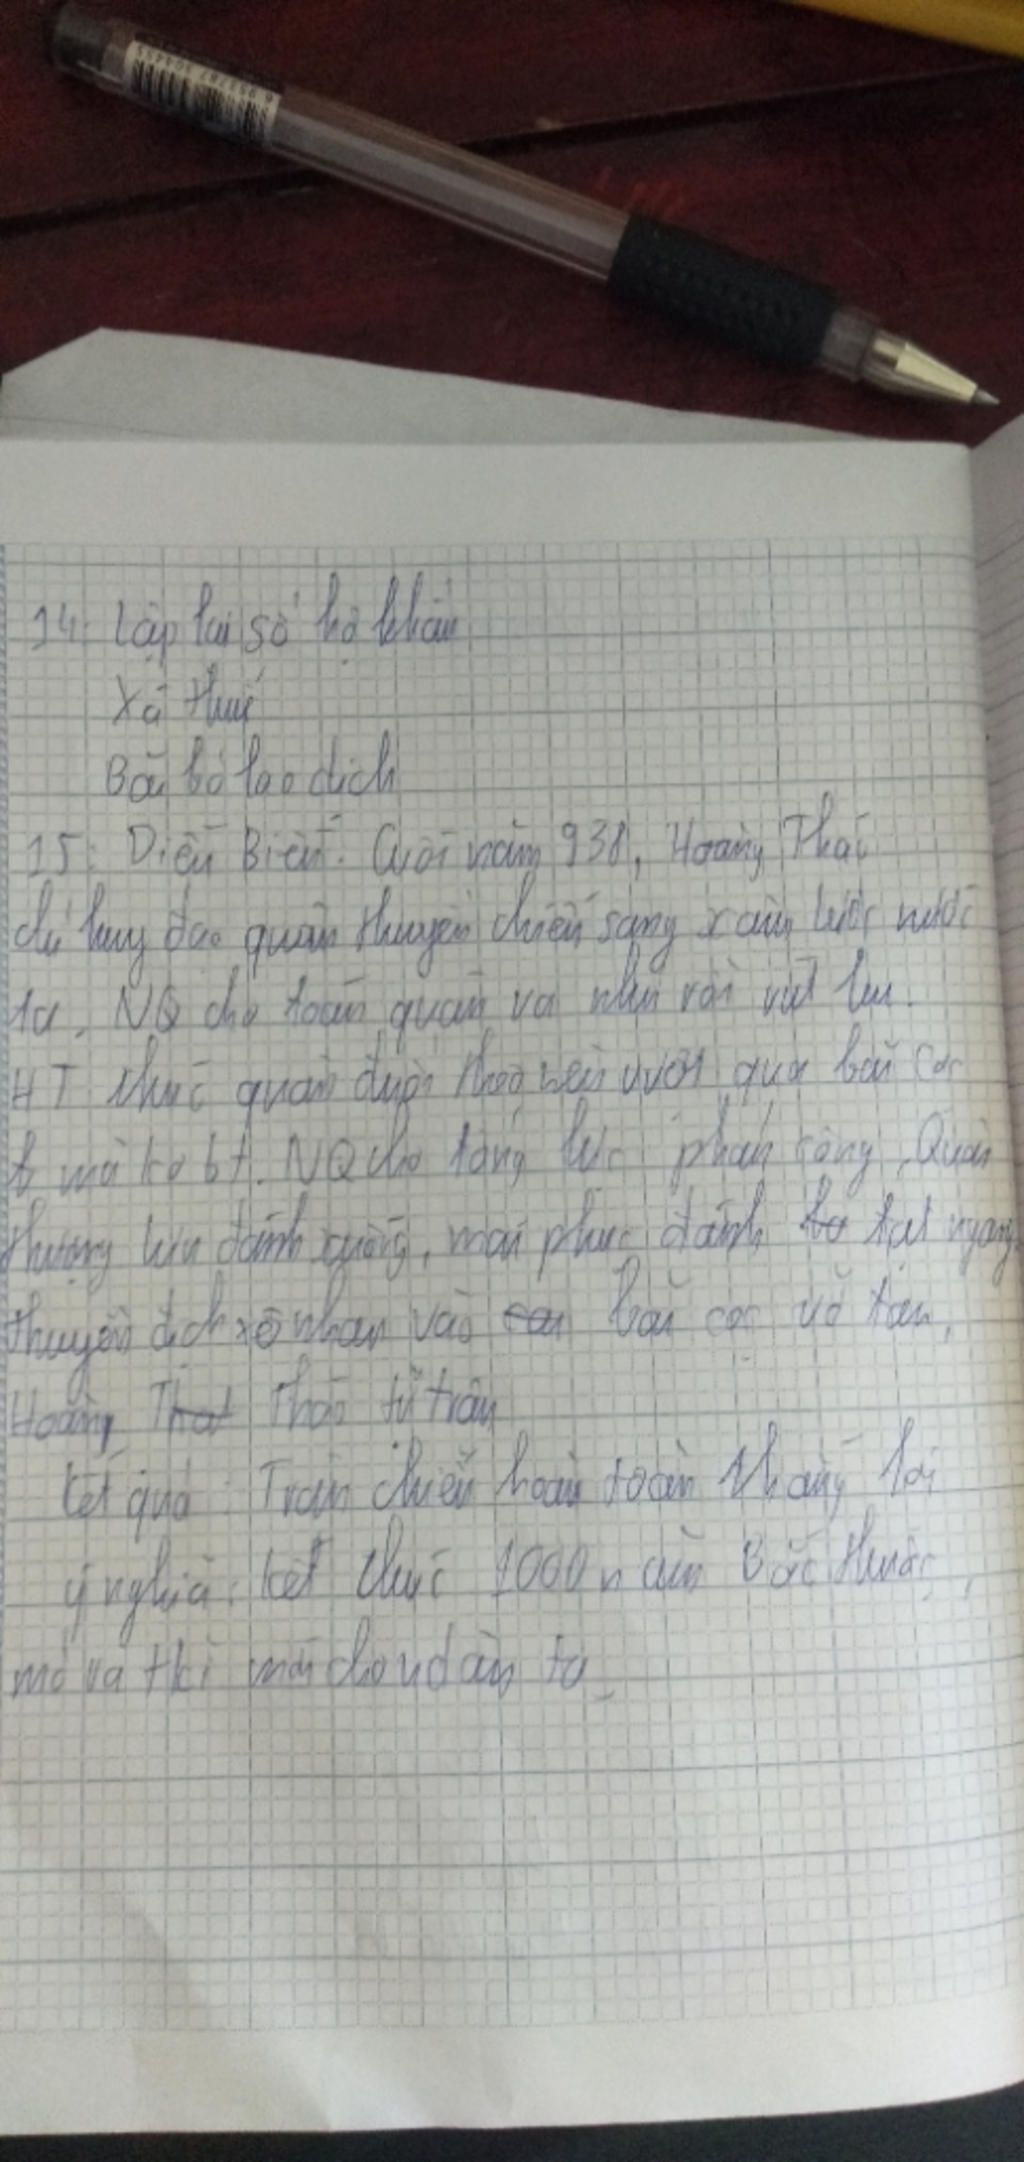 14: Lập lại sổ hộ khẩu
Xá thuế
Bãi bỏ lao dịch
15: Diễn Biến: Cuối năm 938, Hoàng Tháo
chỉ huy đạo quân thuyền chiến sang xâm lược nước
ta. NQ cho toán quân ra nhử rồi rút lui.
HT thúc quân đuổi theo vượt qua bãi cọc
mà ko bt. NQ cho tổng lực phản công. Quân
thượng lưu đánh xuống, mai phục đánh tạt ngang
thuyền địch xô nhau vào bãi cọc vỡ tan,
Hoàng Tháo tử trận
Kết quả: Trận chiến hoàn toàn thắng lợi
ý nghĩa: Kết thúc 1000 năm Bắc thuộc,
mở ra tkì mới cho ndân ta